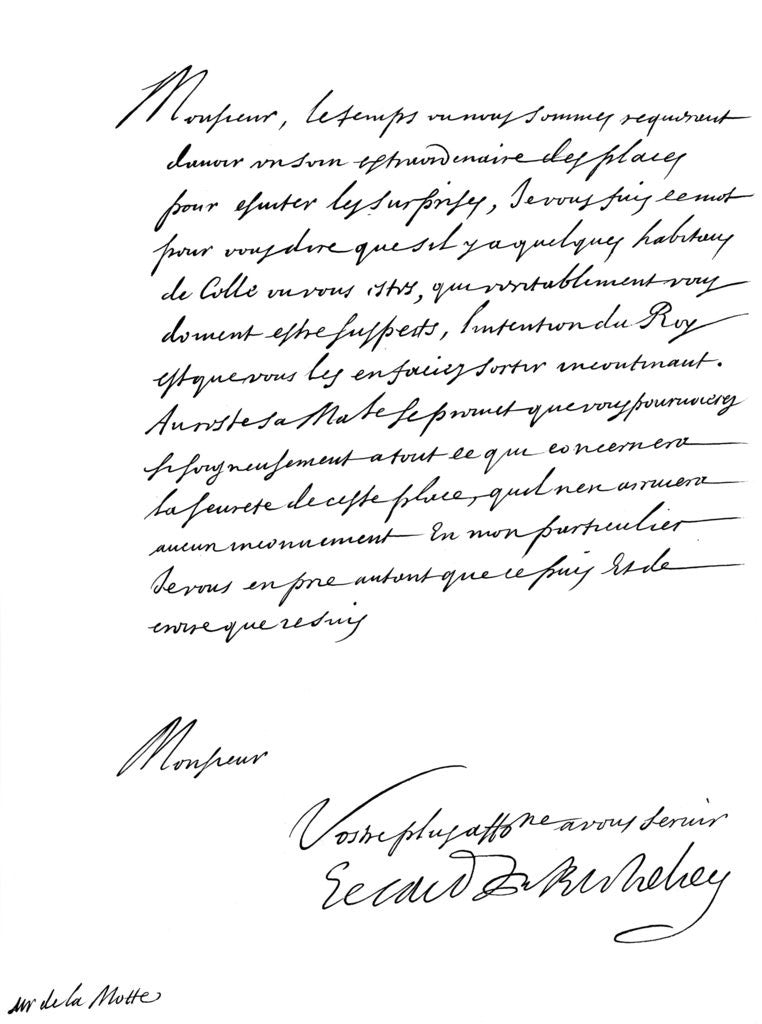 Monsieur, le temps ou nous sommes requerant
davoir un soin extraordinaire des places
pour esuiter les surprises, Je vous fais ce mot
pour vous dire que sil y a quelques habitans
de Celle ou vous estes, qui veritablement vous
doiuent estre suspects, lintention du Roy
est que vous les en faciez sortir incontinant.
Au reste sa Ma.te se promet que vous pouruoierez
si soigneusement a tout ce qui concernera
la seurete de ceste place, quil nen arriuera
aucun inconuenient En mon particulier
Je vous en prie autant que ie puis Et de
croire que ie suis
Monsieur
Vostre plus affne a vous seruir
Le Card de Richelieu
sur de la Motte